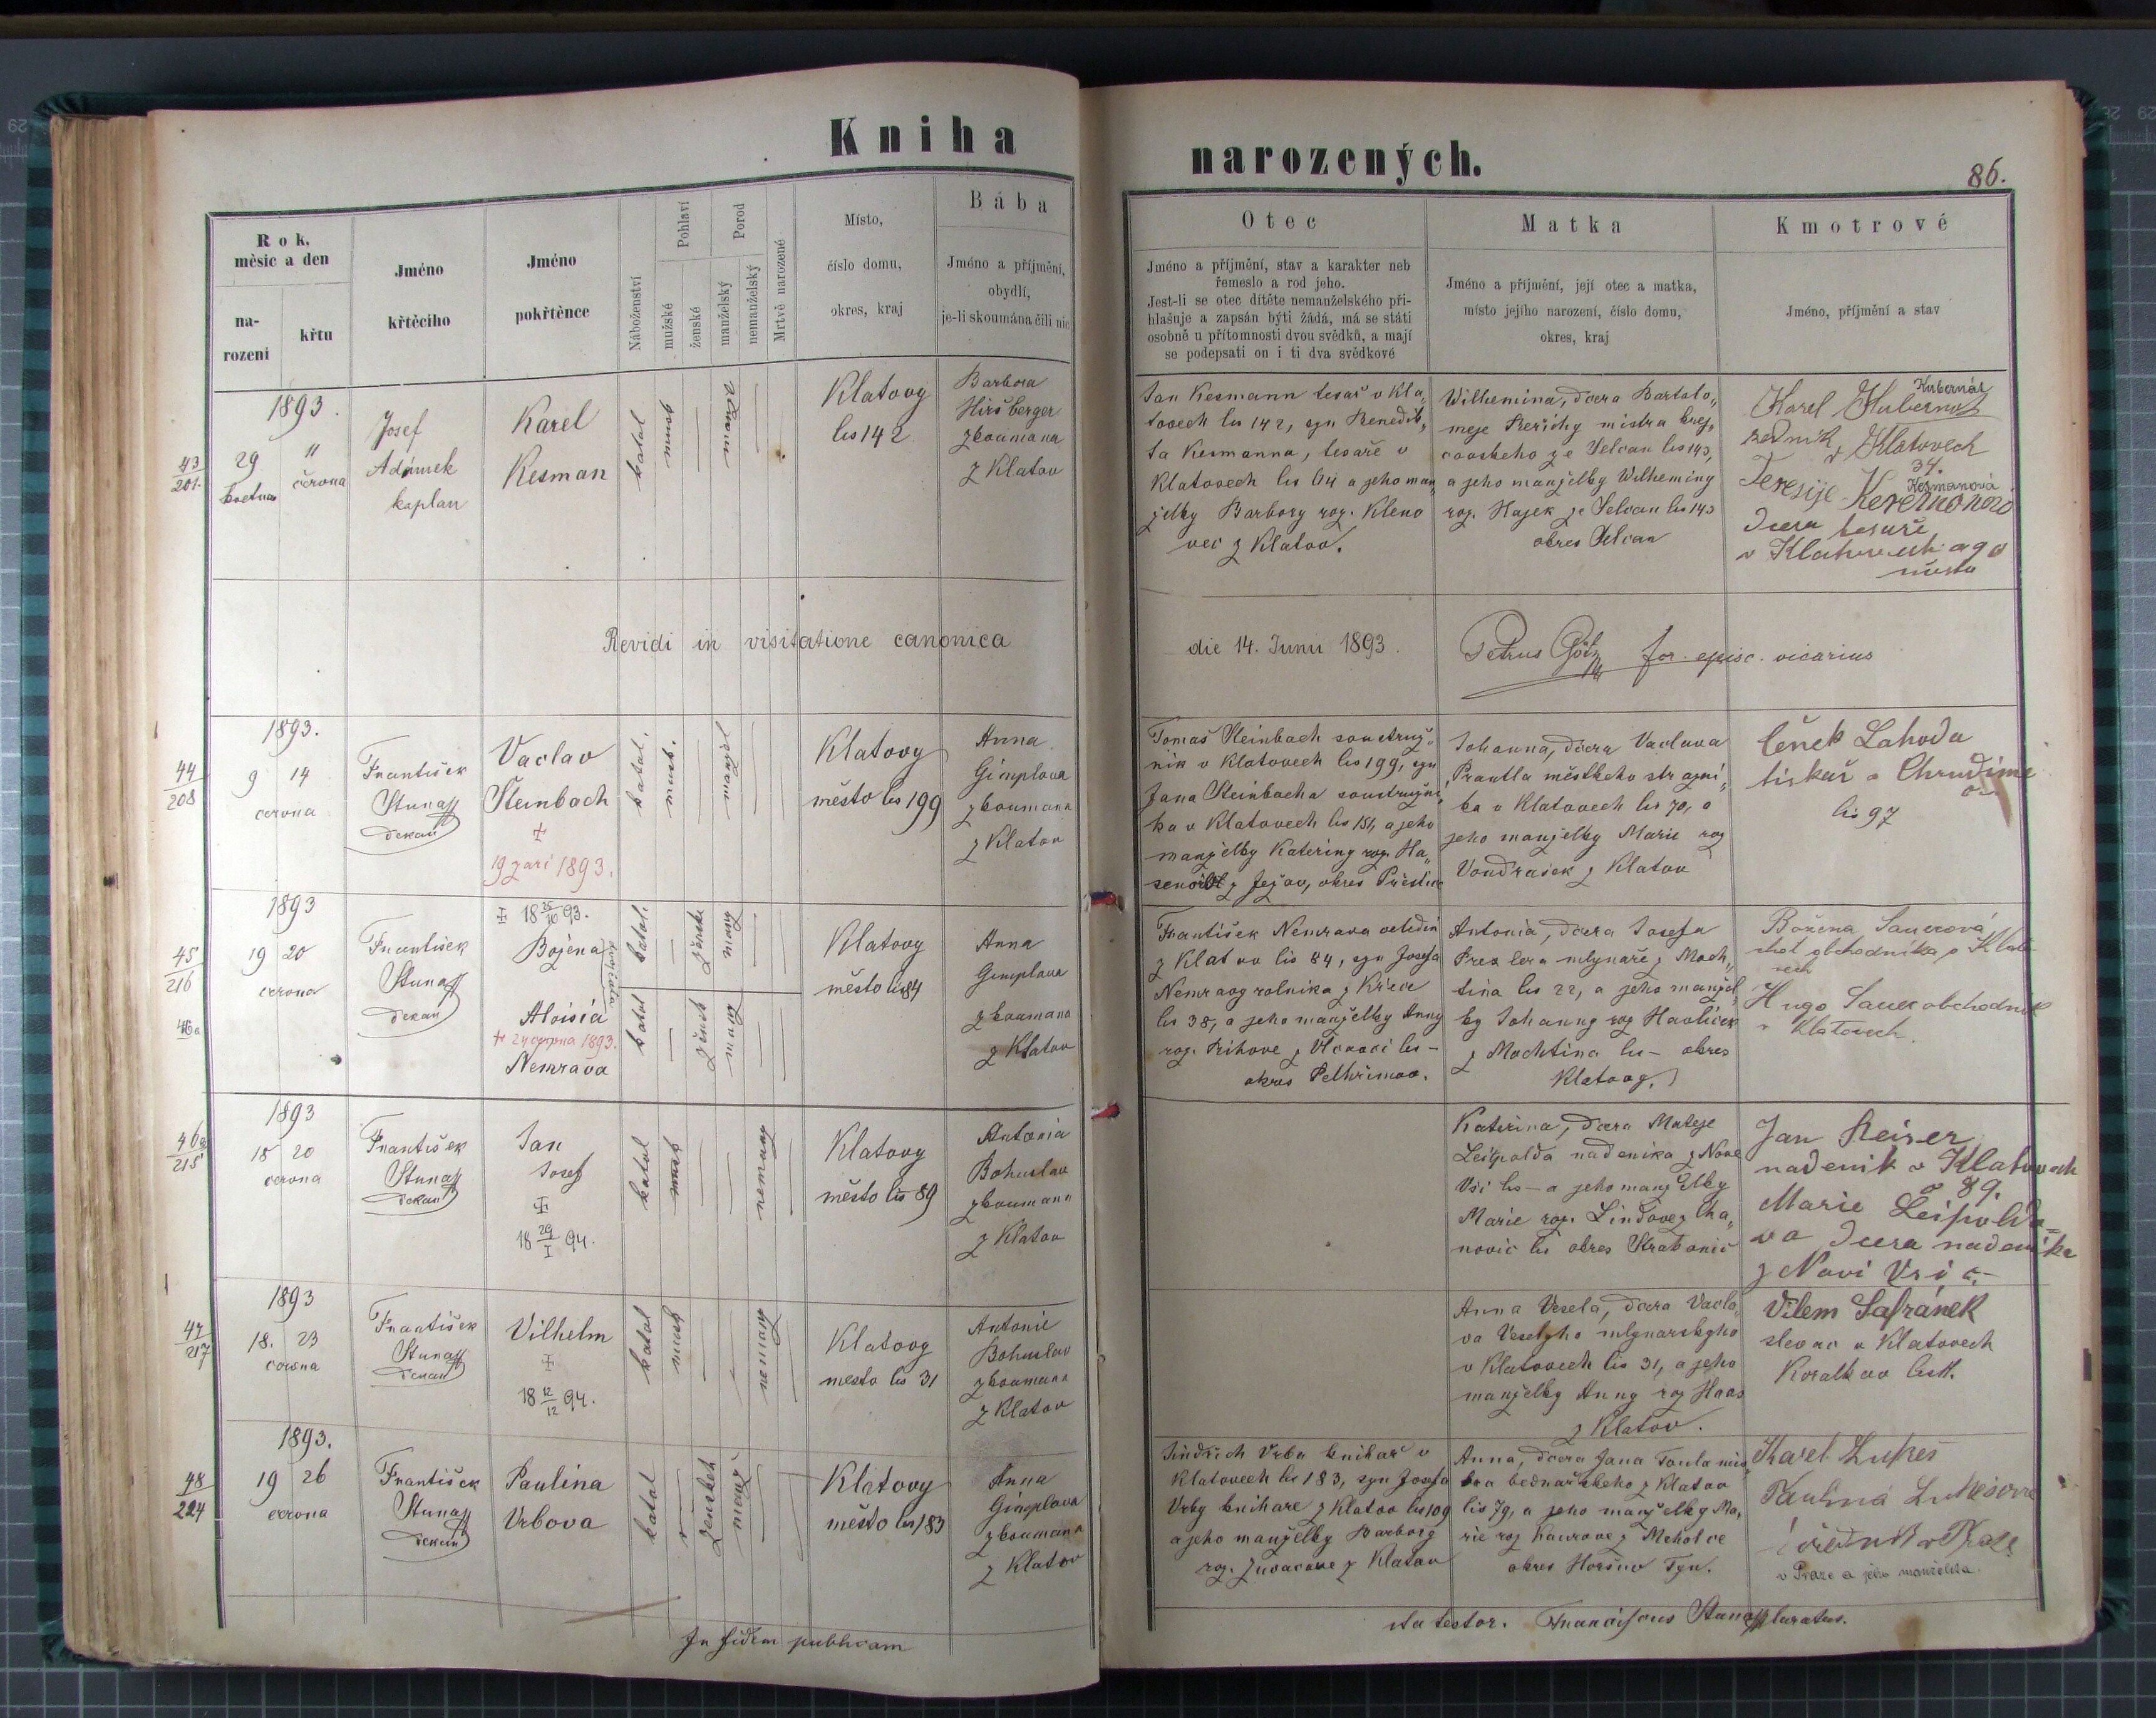 Kniha
narozených.
86.
Rok,
měsíc a den
na-
rozeni
křtu
Jméno
křtěcího
Jméno
pokřtěnce
Náboženství
Pohlaví
mužské
ženské
Porod
manželský
nemanželský
Mrtvě narozené
Místo,
číslo domu,
okres, kraj
Bába
Jméno a příjmění,
obydlí,
je-li skoumána čili nic
Otec
Jméno a příjmění, stav a karakter neb
řemeslo a rod jeho.
Jest-li se otec dítěte nemanželského při-
hlašuje a zapsán býti žádá, má se státi
osobně u přítomnosti dvou svědků, a mají
se podepsati on i ti dva svědkové
Matka
Jméno a příjmění, její otec a matka,
místo jejího narození, číslo domu,
okres, kraj
Kmotrové
Jméno, příjmění a stav
43
201.
1893.
29 11
června
Josef
Adámek
kaplan
Karel
Kesman
katol
musk
Klatovy
čis 142
Barbora
Hirsberger
zkoumana
z Klatov
Jan Kesmann tesař v Kla„
tovech čis 142, syn Benedik„
ta Kesmanna, tesaře v
Klatovech čis 64 a jeho man„
želky Barbory roz. Kleno
vec z Klatov.
Wilhemina, dcera Bartolo„
meje mistra krej„
ze Selcan čis 143,
a jeho manželky Wilheminy
roz. Hajek ze Selcan čis 143
okres Selcan
Kubernát
Karel Kubernat
v Klatovech
34.
Teresije
Kesmanová
dcera tesaře
v Klatovech
města
Revidi in visitatione canonica
die 14. Junii 1893.
Petrus Götz for. episc. vicarius
44
208
1893.
9 14
června
František
Stuna
děkan
Vaclav
Steinbach
+
19 září 1893.
katol.
musk.
manžel
Klatovy
město čis 199
Anna
Gimplova
zkoumana
z Klatov
Tomaš Steinbach soustruž„
nik v Klatovech čis 199, syn
Jana Steinbacha soustružni„
ka v Klatovech čis 151, a jeho
manželky Kateriny roz. Ha„
z Ježov, okres Přestice
Johanna, dcera Vaclava
Prantla městkeho strazni„
ka v Klatovech čis 70, a
jeho manželky Marie roz
Vondrašek z Klatov
Čeněk Lahoda
tiskař v Chrudimi
čis 97
45
216
46a
1893
19 20
června
František
Stuna
děkan
+ 18 25/10 93.
Božena
Aloisia
+ 24 srpna 1893.
Nemrava
dvojčata
katol.
ženske
manž
katol
žensk
manž
Klatovy
město čis 84
Anna
Gimplova
zkoumana
z Klatov
František Nemrava
z Klatov čis 84, syn Josefa
Nemravy rolnika z
čis 38, a jeho manželky Anny
roz. z čis –
okres Pelhřimov.
Antonia, dcera Josefa
mlynaře z Moch„
tina čis 22, a jeho manžel
ky Johanny roz Havlíček
z Mochtina čis – okres
Klatovy.
Božena Sauerová
choť obchodníka v Klato
vech
Hugo Sauer obchodník
v Klatovech.
46a
215
1893
18 20
června
František
Stuna
děkan
Jan
Josef
+
18 29/I 94.
katol
musk
nemanž
Klatovy
město čis 89
Antonia
Bohuslav
zkoumana
z Klatov
Kateřina, dcera Mateje
Leipolda nadenika z Nove
Vsi čis – a jeho manželky
Marie roz. Lindove z Cha„
novic čis okres
Jan Reiser
nadenik v Klatovech
č 89.
Marie Leipoldo=
va dcera nadenika
z Novi Vsi č. –
47
217
1893
18. 23
června
František
Stuna
děkan
Vilhelm
+
18 12/12 94.
katol
musk
nemanž
Klatovy
mesto čis 31
Antonie
Bohuslav
zkoumana
z Klatov
Anna Vesela, dcera Vacla„
va Veselyho mlynarskyho
v Klatovech čis 31, a jeho
manželky Anny roz Haas
z Klatov.
Vilem Šafránek
slevač v Klatovech
48
224
1893.
19 26
června
František
Stuna
děkan
Paulina
Vrbova
katol
manž
Klatovy
město čis 183
Anna
Gimplova
zkoumana
z Klatov
Jindřich Vrba knihař v
Klatovech čis 183, syn Josefa
Vrby knihare z Klatov čis 109
a jeho manželky Barbory
roz. z Klatov
Anna, dcera Jana Toula mis„
tra bednařskeho z Klatov
čis 79, a jeho manželky Ma„
rie roz z
okres Horšuv Tyn.
Karel Lukeš
Paulina Lukešova
v Praze
v Praze a jeho manželka.
In fidem publicam
ita testor. Franciscus Stuna Curatus.